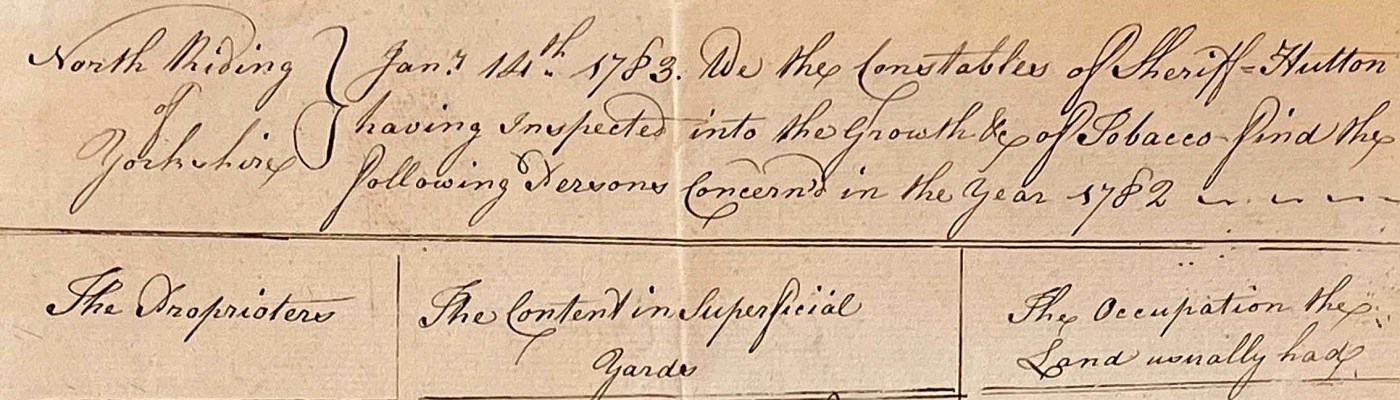 North Riding
of
Yorkshire
Jan.y 14th 1783. We the Constables of Sheriff=Hutton
having Inspected into the Growth &c of Tobacco find the
following Persons Concern'd in the Year 1782
The Proprioters
The Content in Superficial
Yards
The Occupation the
Land usually had